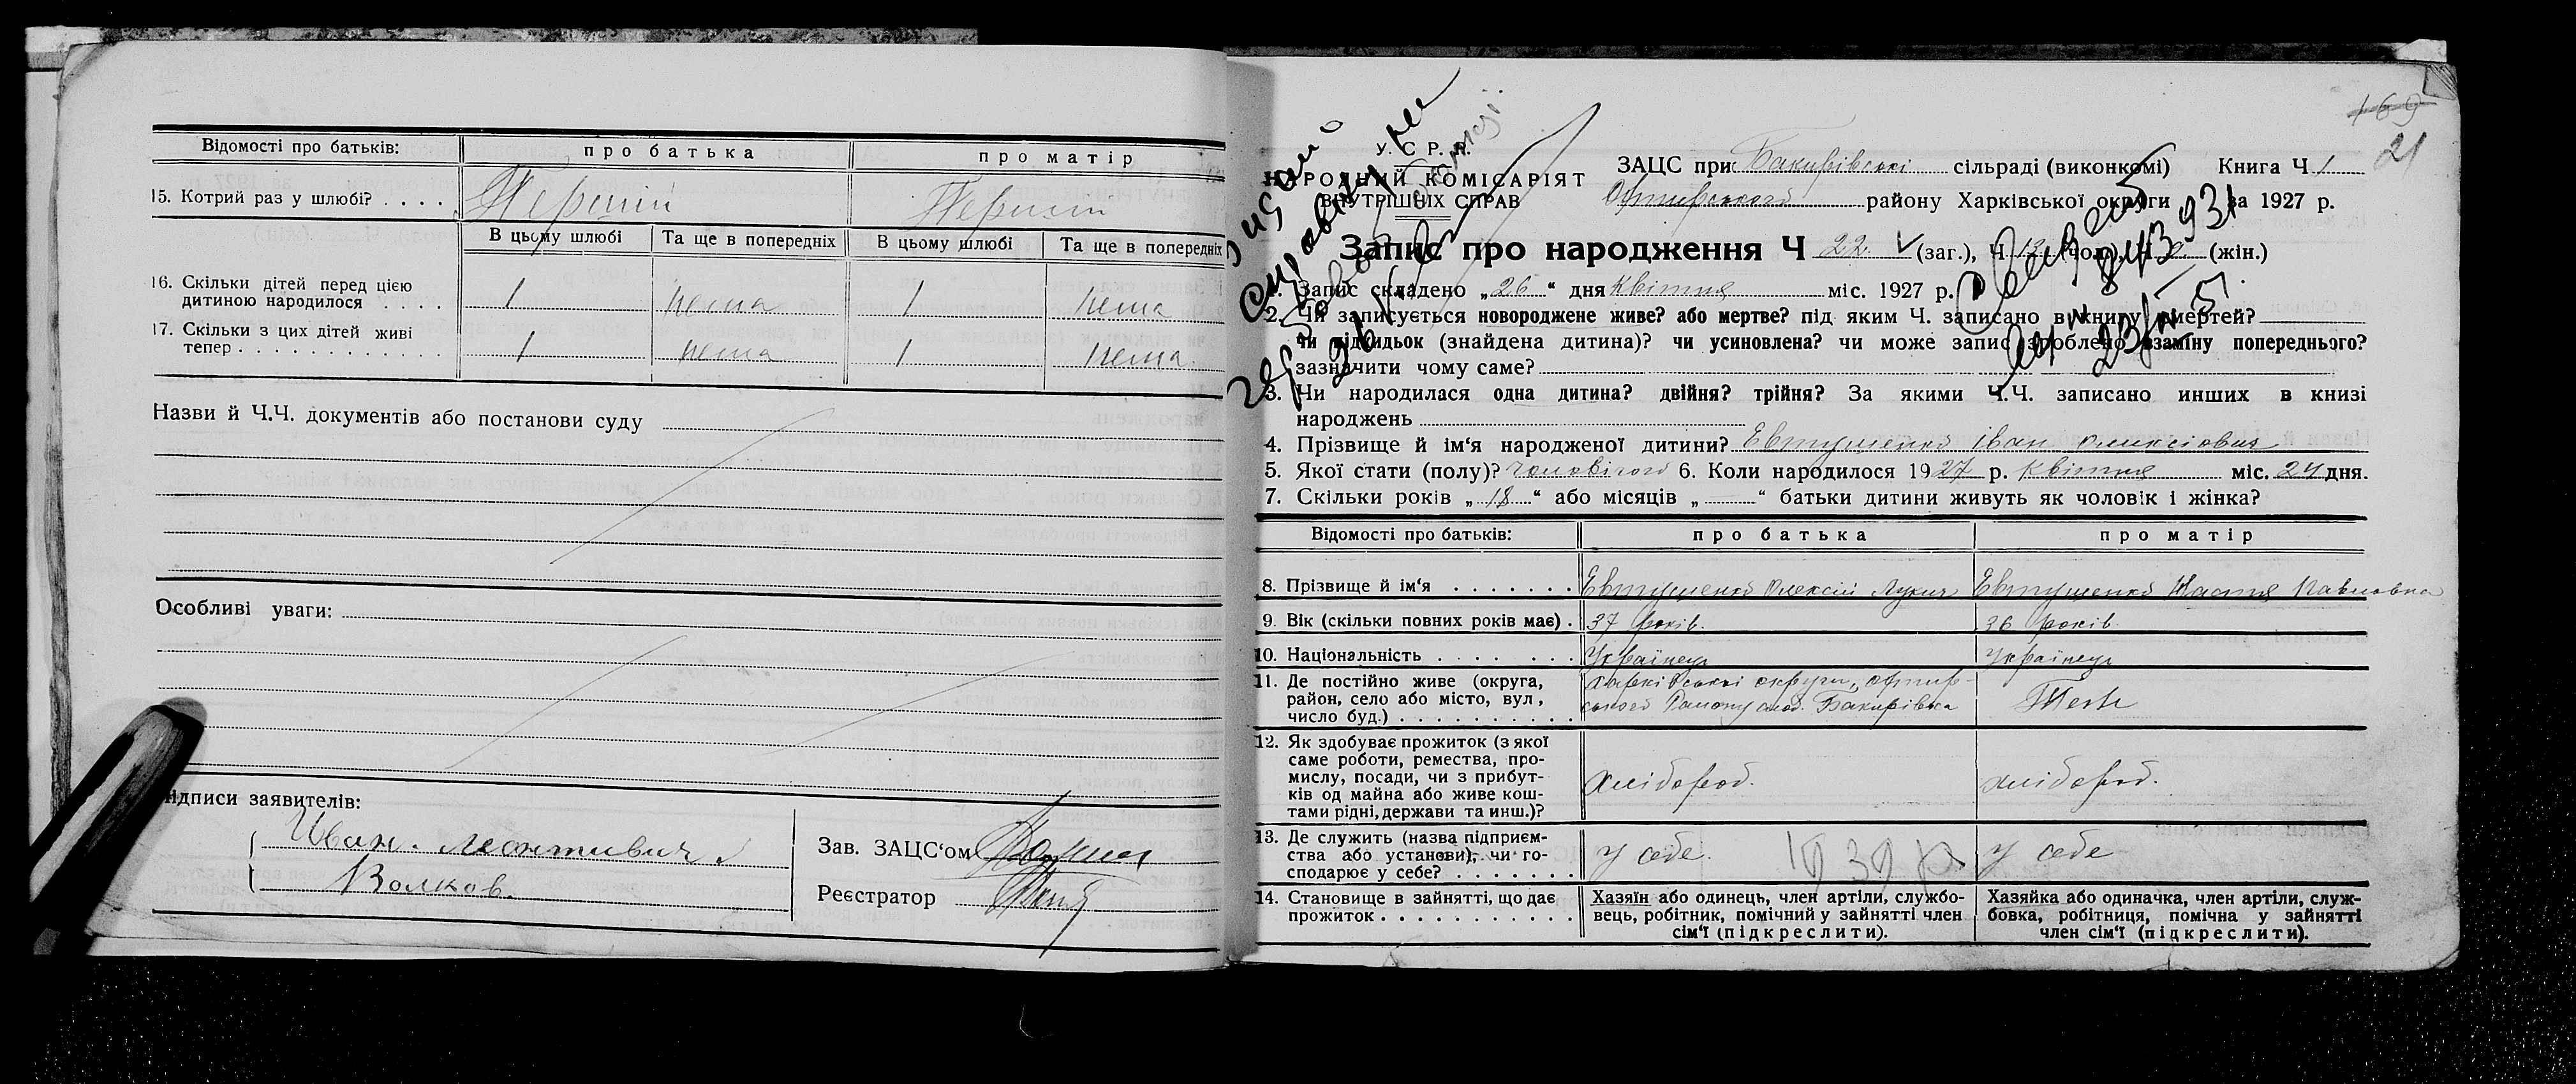 Відомості про батьків: про батька про матір
15. Котрий раз у шлюбі? . . . . Перший Перший
В цьому шлюбі Та ще в попередніх В цьому шлюбі Та ще в попередніх
16. Скільки дітей перед цією
дитиною народилося . . . . 1 нема 1 нема
17. Скільки з цих дітей живі
тепер . . . . . . . . . . . . 1 нема 1 нема
Назви й Ч.Ч. документів або постанови суду
Особливі уваги:
ідписи заявителів:
Иван. Леонтиевич
Волков.
Зав. ЗАЦС'ом
Реєстратор
169
21
У. С. Р. Р.
НАРОДНИЙ КОМІСАРІЯТ
ВНУТРІШНІХ СПРАВ
ЗАЦС при Бакирівські сільраді (виконкомі) Книга Ч 1
Охтирського району Харківської округи за 1927 р.
Запис про народження Ч 22 (заг.), Ч 13 (чол.), Ч (жін.)
1. Запис складено „26“ дня Квітня міс. 1927 р.
2. Чи записується новороджене живе? або мертве? під яким Ч. записано в книгу смертей?
чи підкидьок (знайдена дитина)? чи усиновлена? чи може запис зроблено взаміну попереднього?
зазначити чому саме?
3. Чи народилася одна дитина? двійня? трійня? За якими Ч.Ч. записано инших в книзі
народжень
4. Прізвище й ім'я народженої дитини? Евтушенко Іван Олексіович
5. Якої стати (полу)? Чоловічого 6. Коли народилося 1927 р. Квітня міс. 24 дня.
7. Скільки років „18“ або місяців „ “ батьки дитини живуть як чоловік і жінка?
Відомості про батьків: про батька про матір
8. Прізвище й ім'я . . . . . . . Евтушенко Олексій Лукич Евтушенко Настя Павловна
9. Вік (скільки повних років має) . 37 років. 36 років
10. Національність . . . . . . . Українець Українець
11. Де постійно живе (округа, Харківської округи, Охтир-
район, село або місто, вул., ського Району слоб. Бакирівка Теж
число буд.) . . . . . . . . . .
12. Як здобуває прожиток (з якої
саме роботи, ремества, про-
мислу, посади, чи з прибут- хлібороб. хлібороб.
ків од майна або живе кош-
тами рідні, держави та инш.)?
13. Де служить (назва підприєм-
ства або установи), чи го- у себе. у себе
сподарює у себе? . . . . . . .
14. Становище в зайнятті, що дає Хазяїн або одинець, член артіли, службо- Хазяйка або одиначка, член артіли, служ-
прожиток . . . . . . . . . . . вець, робітник, помічний у зайнятті член бовка, робітниця, помічна у зайнятті
сім'ї (підкреслити). член сім'ї (підкреслити).